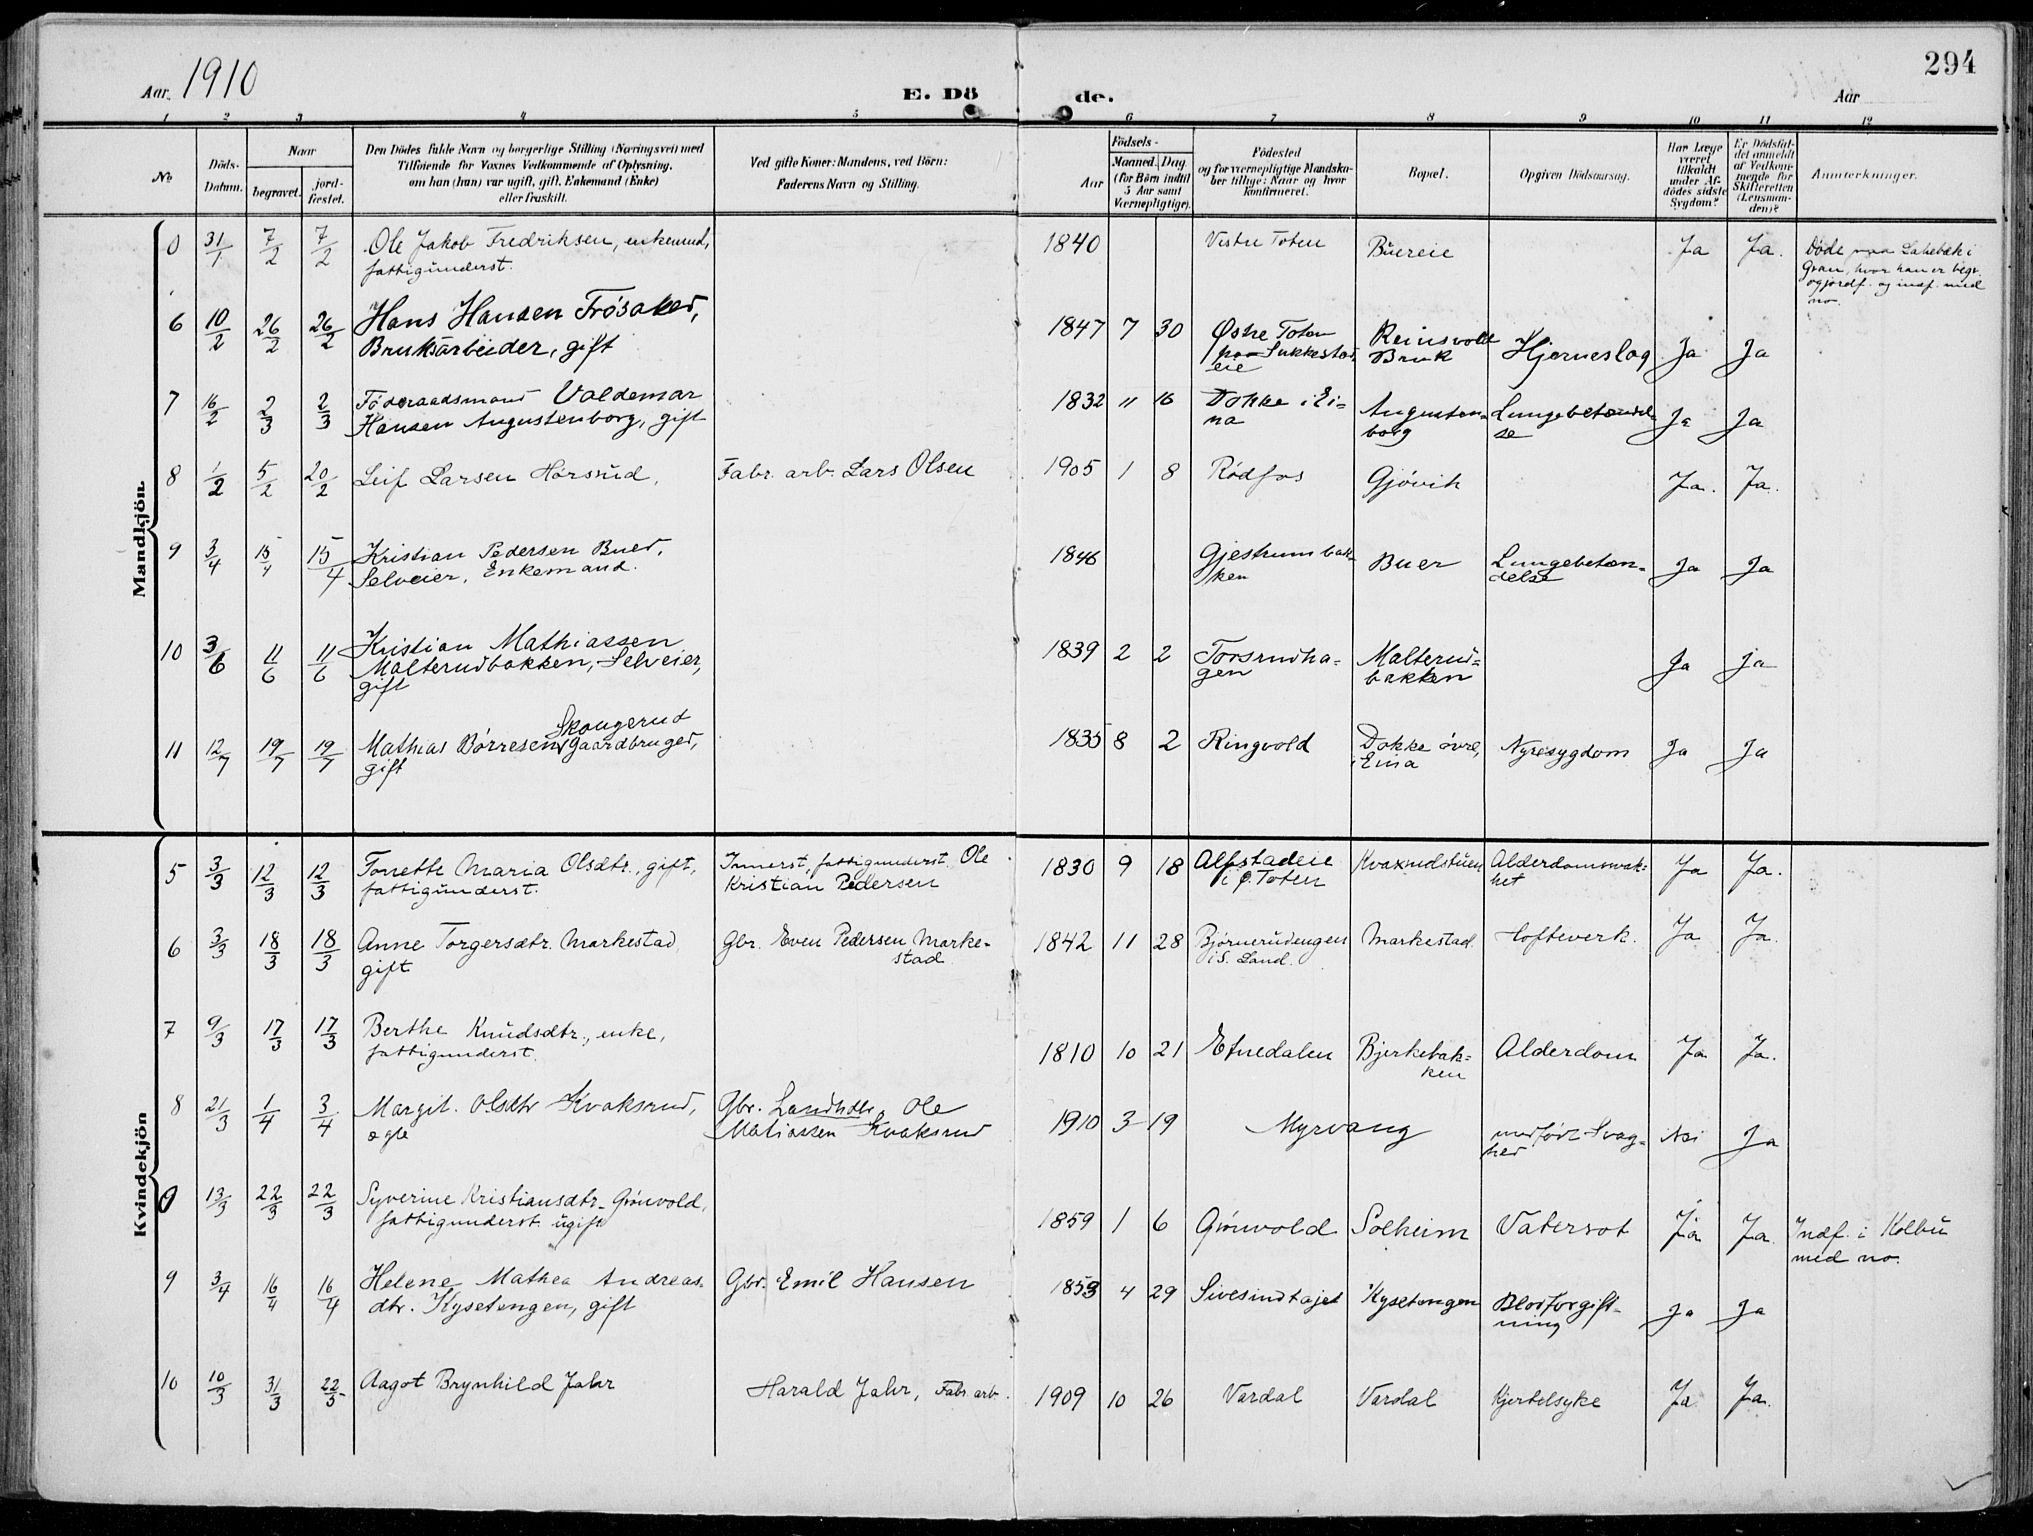 Aar. 1910
E. Dö
de.
Aar
294
1 2 3 4 5 6 7 8 9 10 11 12
No
Döds-
Datum.
Naar
begravet.
jord-
fæstet.
Den Dödes fulde Navn og borgerlige Stilling (Næringsvei) med
Tilföiende for Voxnes Vedkommende af Oplysning,
om han (hun) var ugift, gift, Enkemand (Enke)
eller fraskilt.
Ved gifte Koner: Mandens, ved Börn:
Faderens Navn og Stilling.
Födsels-
Aar
Maaned. Dag.
(for Börn indtil
5 Aar samt
Værnepligtige).
Födested
og for værnepligtige Mandska-
ber tillige: Naar og hvor
konfirmeret.
Bopæl.
Opgiven Dödsaarsag.
Har Læge
været
tilkaldt
under Af-
dödes sidste
Sygdom?
Er Dödsfal-
det anmeldt
af Vedkom-
mende for
Skifteretten
(Lensman-
den)?
Anmærkninger.
Mandkjön.
0 31/1 7/2 7/2 Ole Jakob Fredriksen, enkemd, 1840 Vestre Toten Büereie Ja Ja. Døde paa Lakebæk i
fattigunderst. Gran, hvor han er begr.
og jordf. og indf. med
no.
6 10/2 26/2 26/2 Hans Hansen Frøsaker, 1847 7 30 Østre Toten Reinsvold Hjerneslag Ja Ja
Bruksarbeider, gift paa Sukkestad Bruk
eie
7 16/2 2/3 2/3 Föderaadsmand Valdemar 1832 11 16 Dokke i Ei- Augusten- Lungebetændel- Ja Ja
Hansen Augustenborg, gift na borg se
8 1/2 5/2 20/2 Leif Larsen Hørsrud, Fabr. arb. Lars Olsen 1905 1 8 Rødfos Gjøvik Ja. Ja.
9 3/4 15/4 15/4 Kristian Pedersen Buer, 1846 Gjestrumbak- Buer Lungebetæn- Ja Ja
Selveier, Enkemand. ken delse
10 3/6 11/6 11/6 Kristian Mathiassen 1839 2 2 Torsrudha- Malterud- Ja ja
Malterudbakken, Selveier, gen bakken
gift
Skougerud
11 12/7 19/7 19/7 Mathias Børresen Gaardbruger, 1835 8 2 Ringvold Dokke øvre, Nyresygdom Ja Ja
gift i Eina
Kvindekjön
5 3/3 12/3 12/3 Tonette Maria Olsdtr., gift, Innerst, fattigunderst. Ole 1830 9 18 Alfstadeie Kvaxrudstuen Alderdomssvak- Ja Ja.
fattigunderst. Kristian Pedersen i Ø. Toten het
6 3/3 18/3 18/3 Anne Torgersdtr. Markestad, Gbr. Even Pedersen Marke- 1842 11 28 Bjørnerudengen Markestad. Hofteverk. Ja Ja.
gift stad i S. Land.
7 9/3 17/3 17/3 Berthe Knudsdtr., enke, 1810 10 21 Etnedalen Bjerkebak- Alderdom Ja Ja.
fattigunderst. ken
8 21/3 1/4 3/4 Margit Olsdtr Kvaksrud, Gbr. Landhdlr. Ole 1910 3 19 Myrvang medfødt Svag- Nei Ja
ægte Matiassen Kvaksrud hed
9 13/3 22/3 22/3 Syverine Kristiansdtr. Grønvold, 1859 1 6 Grønvold Solheim Vatersot Ja Ja. Indf. i Kolbu
fattigunderst. ugift med no.
9 3/4 16/4 16/4 Helene Mathea Andreas- Gbr. Emil Hansen 1853 4 29 Sivesindtajet Kysetengen Blodforgift- Ja Ja
dtr. Kysetengen, gift ning
10 10/3 31/3 22/5 Aagot Brynhild Jahr Harald Jahr, Fabr. arb. 1909 10 26 Vardal Vardal Kjertelsyke Ja Ja.